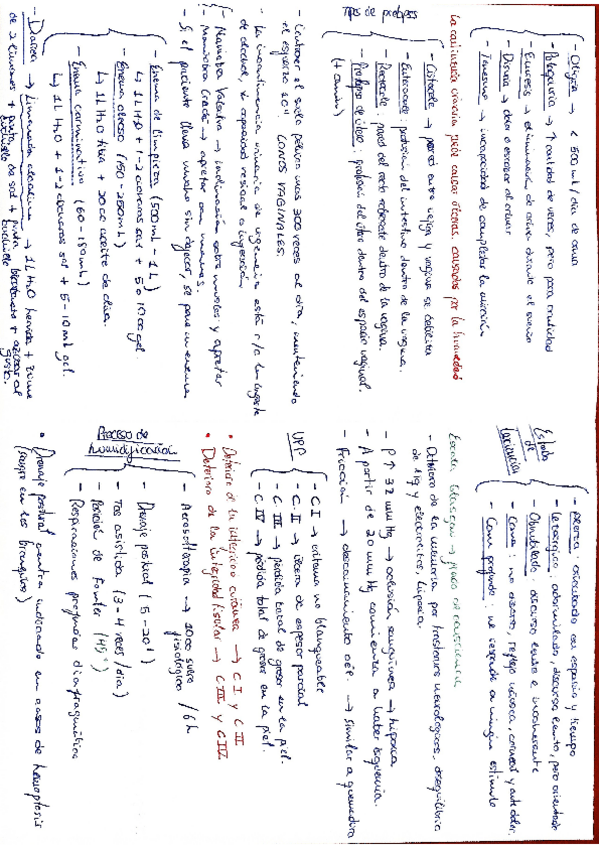 - Oliguria → < 500 ml/día de orina
- Polaquiuria → ↑ cantidad de veces, pero poca cantidad
- Enuresis → eliminación de orina durante el sueño
- Disuria → dolor o escozor al orinar
- Tenesmo → incapacidad de completar la micción
La continencia urinaria puede causar úlceras, causadas por la humedad
Tipos de prolapsos
- Cistocele → pared entre vejiga y vagina se debilita
- Enterocele: protusión del intestino dentro de la vagina.
- Rectocele: pared del recto sobresale dentro de la vagina.
- Prolapso de útero: protusión del útero dentro del espacio vaginal.
(+ común)
- Contraer el suelo pélvico unas 300 veces al día, manteniendo
el esfuerzo 10'' CONOS VAGINALES.
- La incontinencia urinaria de urgencia está r/c la ingesta
de alcohol, ↓ capacidad vesical e ingestión
- Maniobra Valsalva → inclinación sobre muslos y apretar
- Maniobra Credé → apretar con manos.
- Si el paciente lleva mucho sin defecar, se pone un enema
- Enema de limpieza (500 ml - 1L)
↳ 1L H2O + 1-2 cdveras sal + 5 o 10 cc gel.
- Enema oleoso (150-250mL)
↳ 1L H2O tibia + 20 cc aceite de oliva.
- Enema carminativo (60-180mL)
↳ 1L H2O + 1-2 cdveras sal + 5-10 ml gel.
- Diarrea → Limonada alcalina → 1L H2O hervida + zumo
de 2 limones + punta cuchillo de sal + punta cuchillo bicarbonato + azúcar al
gusto.
Estados
de
conciencia
- Alerta: orientado en espacio y tiempo
- Letárgico: adormilado, discurso lento, pero orientado
- Obnubilado: discurso lento e incoherente
- Coma: no dolor, reflejo
- Coma profundo: no responde a ningún estímulo
Escala Glasgow → grado de conciencia
- Deterioro de la memoria por trastornos neurológicos, desequilibrio
de líq y electrolitos, hipoxia.
- P ↑ 32 mmHg → oclusión sanguínea → hipoxia
- A partir de 20 mmHg comienza a haber isquemia.
- Fricción → desgarramiento → similar a quemadura
UPP
- C.I → eritema no blanqueable
- C.II → úlcera de espesor parcial
- C.III → pérdida total de grosor en la piel
- C.IV → pérdida total de grosor en la piel.
• Deterioro de la integridad cutánea → C.I y C.II
• Deterioro de la integridad tisular → C.III y C.IV
Proceso de
humidificación
- Aerosolterapia → 10cc suero fisiológico / 6h
- Drenaje postural (5-20')
- Tos asistida (3-4 veces/día)
- Posición de Fowler (45º)
- Respiraciones profundas diafragmática
• Drenaje postural contraindicado en casos de hemoptisis
(sangre en los bronquios)